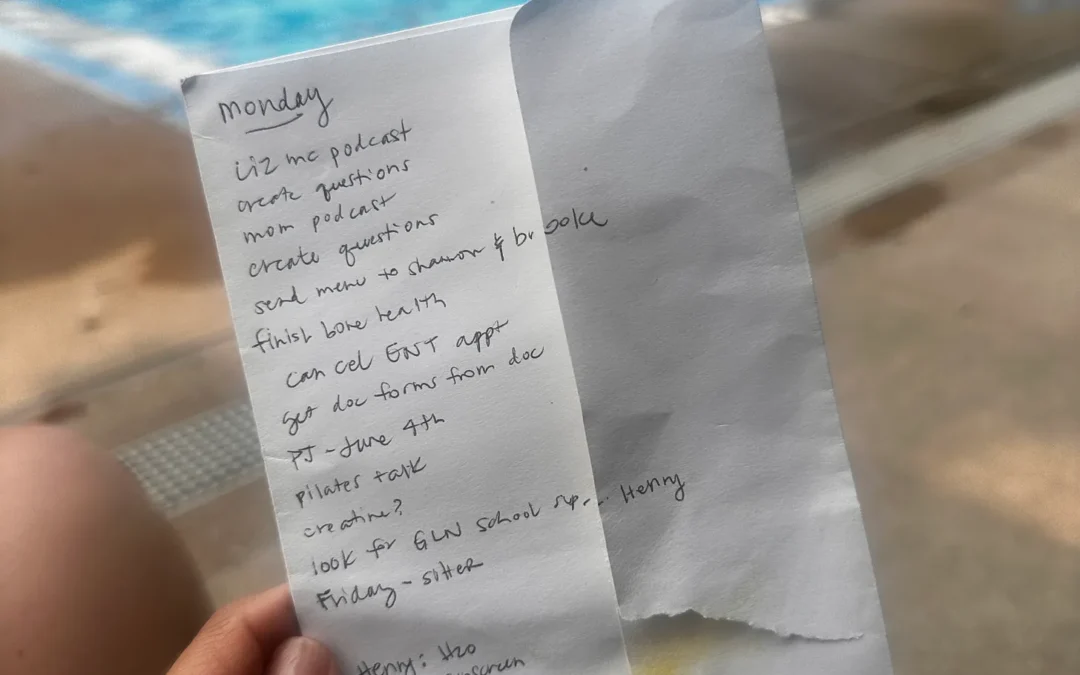 monday
Liz mc podcast
create questions
mom podcast
create questions
send menu to shannon & brooke
finish bone health
cancel ENT appt
get doc forms from doc
PJ - June 4th
pilates talk
creatine?
look for GLN school Henry
Friday - sitter
Henry: H2O